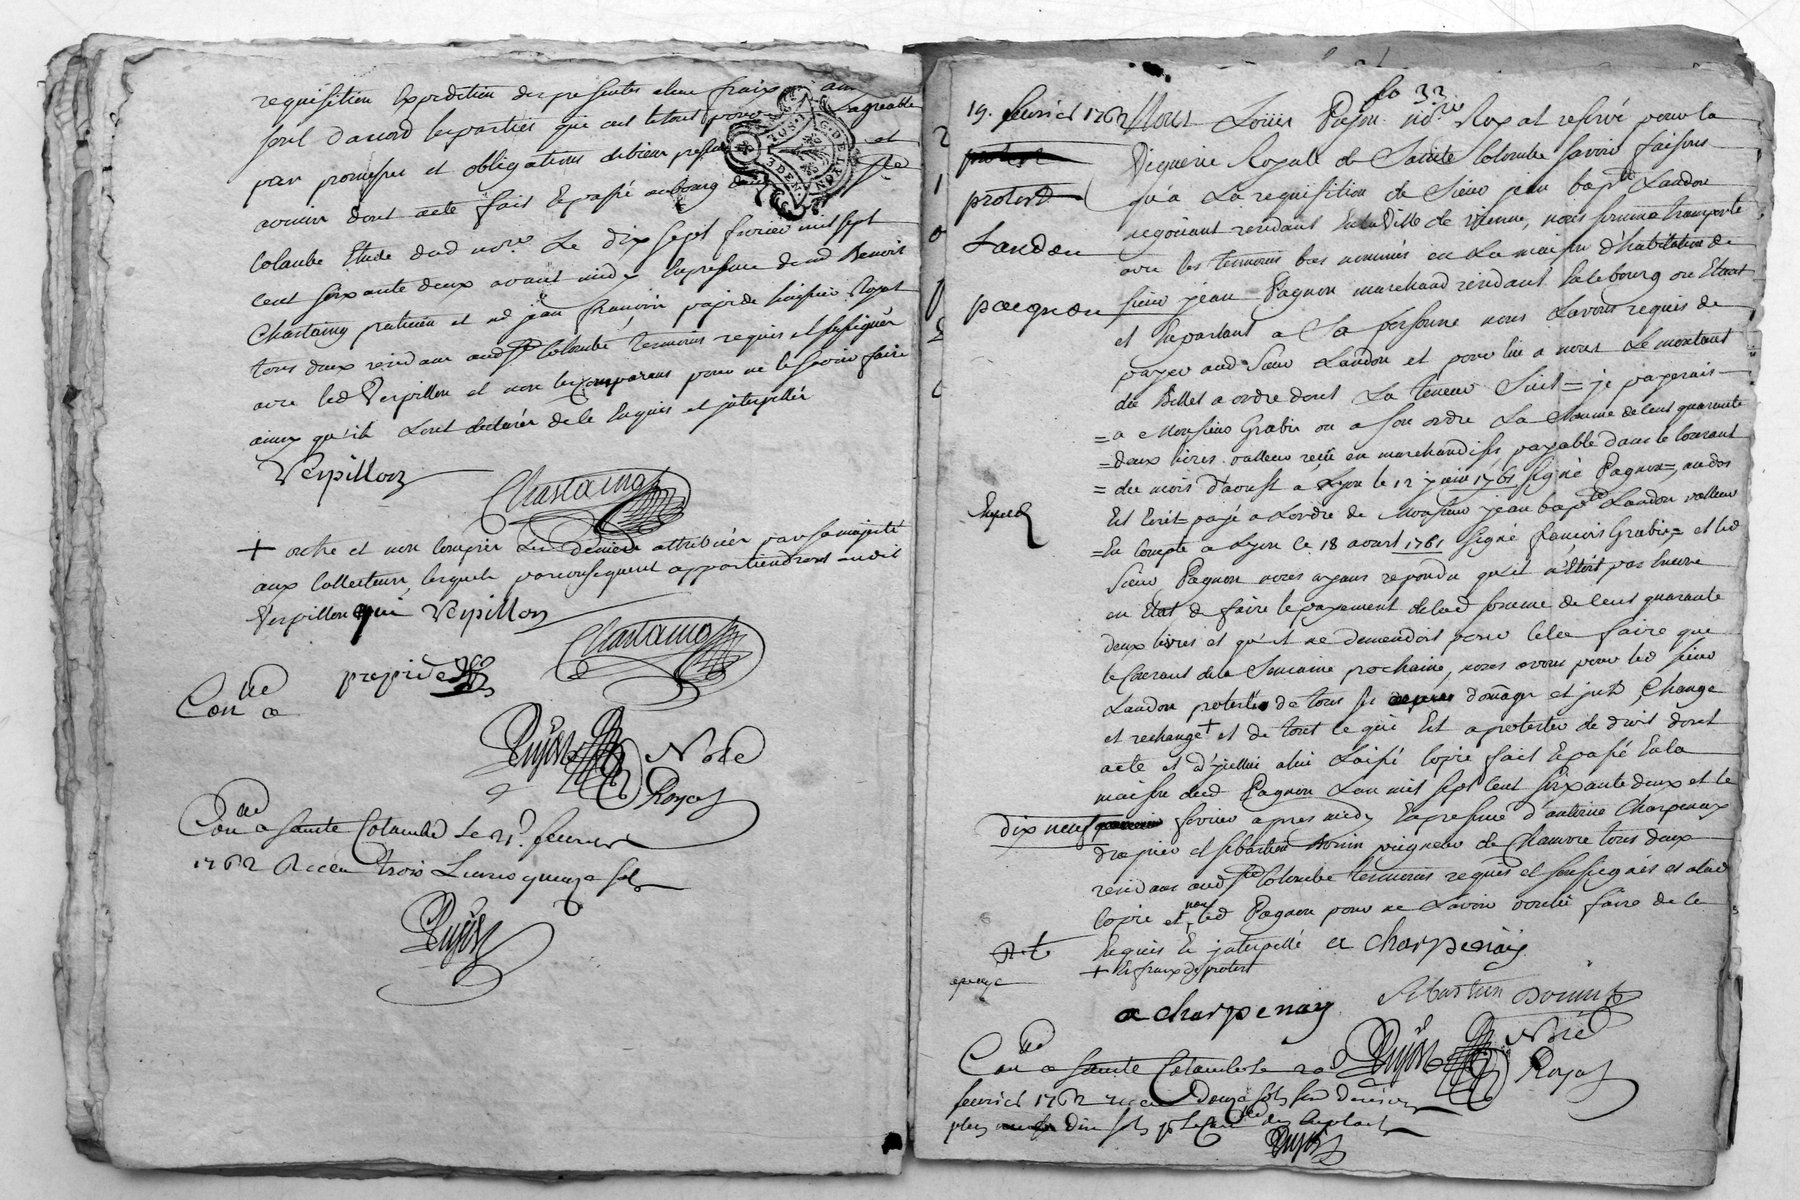 requisition Expedition des presentes a leur fraix
sont d'acord les parties qui ont le tout
par promesses et obligations de bien
avouir dont acte fait et passé au bourg de Ste
Colombe Etude dud no.re Le dix sept fevrier mil sept
cent soixante deux avant midy En presence de md Benoit
Chastaing praticien et md jean françois huissier Royal
tous deux residans aud Ste Colombe temoins requis et sousignés
avec led Verpillon et non les comparans pour ne le sçavoir faire
ainsy qu'ils L'ont declarés de le Enquis et jnterpellés
Verpillon
Chastaing
+ outre et non compris Les deniers attribués par sa majesté
aux Collecteurs, lesquels par consequent appartiendront audit
Verpillon Verpillon
Chastaing
Con.lle a
Nore
Royal
Con.lle a Sainte Colombe Le 21.e fevrier
1762 Receu trois Livres quinze sols
fo 33
19. fevrier 1762
protest
Landon
pacgnon
Nous Louis no.re Royal reservé pour la
Viguerie Royalle de Sainte Colombe savoir faisons
qu'a La requisition de Sieur jean bap.te Landon
negociant residant En la Ville de Vienne, nous somme transporté
avec les temoins bas nommés en La maison d'habitation de
sieur jean Pagnon marchand residant en le bourg ou Etant
et En parlant a Sa personne nous L'avons requis de
payer aud Sieur Landon et pour lui a nous Le montant
du Billet a ordre dont La teneur Suit = je payerais
= a Monsieur Grabis ou a son ordre La Somme de Cent quarante
= deux livres valleur reçue en marchandises payable dans le Courant
= du mois d'aoust a Lyon le 12 juin 1761 signé Pagnon =, au dos
Est Ecrit = payé a L'ordre de Monsieur jean bap.te Landon valleur
= En Compte a Lyon Ce 18 aoust 1761 signé françois Grabis = et led
Sieur Pagnon nous ayant repondu qu'il n'Etoit pas Encore
en Etat de faire le payement de lad somme de Cent quarante
deux livres et qu'il ne demendoit pour Cela faire que
le Courant de la Semaine prochaine, nous avons pour led sieur
Landon protesté de tous domages et Change
et rechange + et de tout Ce qui Est a protester de droit dont
acte et d'jcelluy a lui Laissé Copie fait Et passé En la
maison dud Pagnon L'an mil sept Cent soixante deux et le
dix neuf fevrier apres midy En presence d'antoine Charpenay
drapier et sebastien peigneur de Chanvre tous deux
residans aud Ste Colombe temoins requis et sousignés et a lad
Copie et non led Pagnon pour ne L'avoir voulu faire de le
Enquis Et jnterpellé a Charpenaÿ
+ Et fraix de protest
a charpenaÿ
Sebastien
Nore
Royal
Con.lle a Sainte Colombe Le 20
fevrier 1762 receu Douze sols